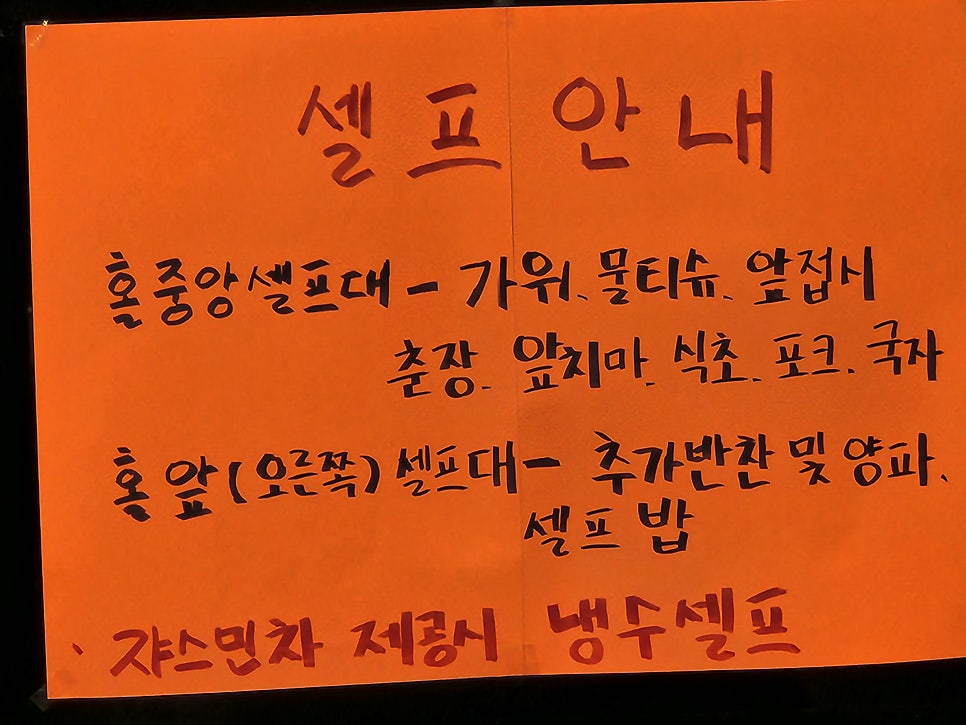 셀프안내
홀중앙셀프대 - 가위. 물티슈. 앞접시
춘장. 앞치마. 식초. 포크. 국자
홀 앞 (오른쪽) 셀프대 - 추가반찬 및 양파.
셀프 밥
· 쟈스민차 제공시 냉수셀프